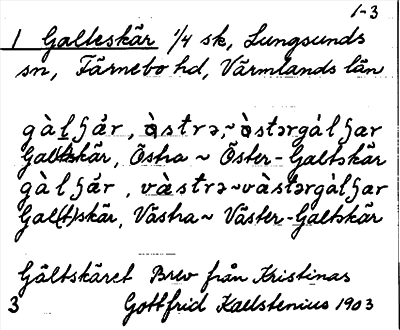 1-3
1 Galteskär 1/4 sk, Lungsunds
sn, Färnebo hd, Värmlands län
gàlʃär, òstrə,~òstərgàlʃar
Galtskär, Östra ~ Öster-Galtskär
gàlʃär, vàstrə~vàstərgàlʃar
Gal(t)skär, Västra ~ Väster-Galtskär
Gältskäret Brev från Kristinas
3 Gottfrid Kallstenius 1903